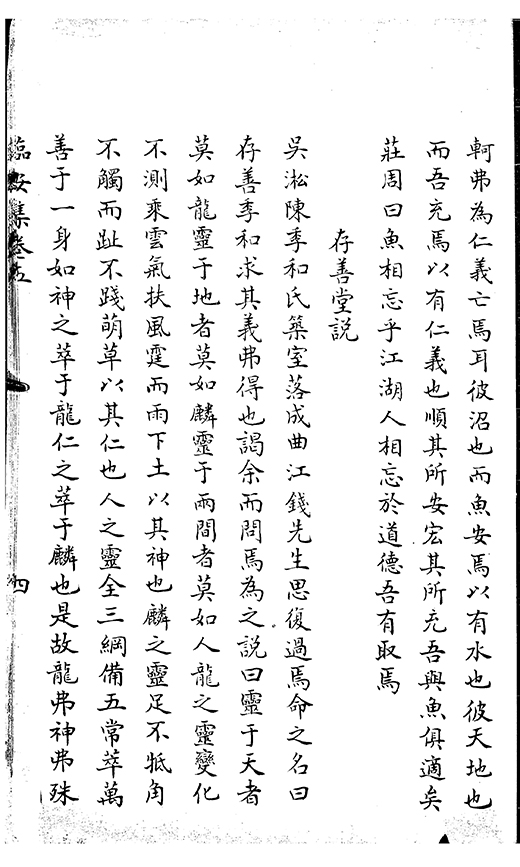 軻弗為仁義亡焉耳彼沼也而魚安焉以有水也彼天地也
而吾充焉以有仁義也順其所安宏其所充吾與魚俱適矣
莊周曰魚相忘乎江湖人相忘於道德吾有取焉
存善堂說
吳淞陳季和氏築室落成曲江錢先生思復過焉命之名曰
存善季和求其義弗得也謁余而問焉為之說曰靈于天者
莫如龍靈于地者莫如麟靈于兩間者莫如人龍之靈變化
不測乘雲氣扶風霆而雨下土以其神也麟之靈足不牴角
不觸而趾不踐萌草以其仁也人之靈全三綱備五常萃萬
善于一身如神之萃于龍仁之萃于麟也是故龍弗神弗殊
臨安集卷五
四